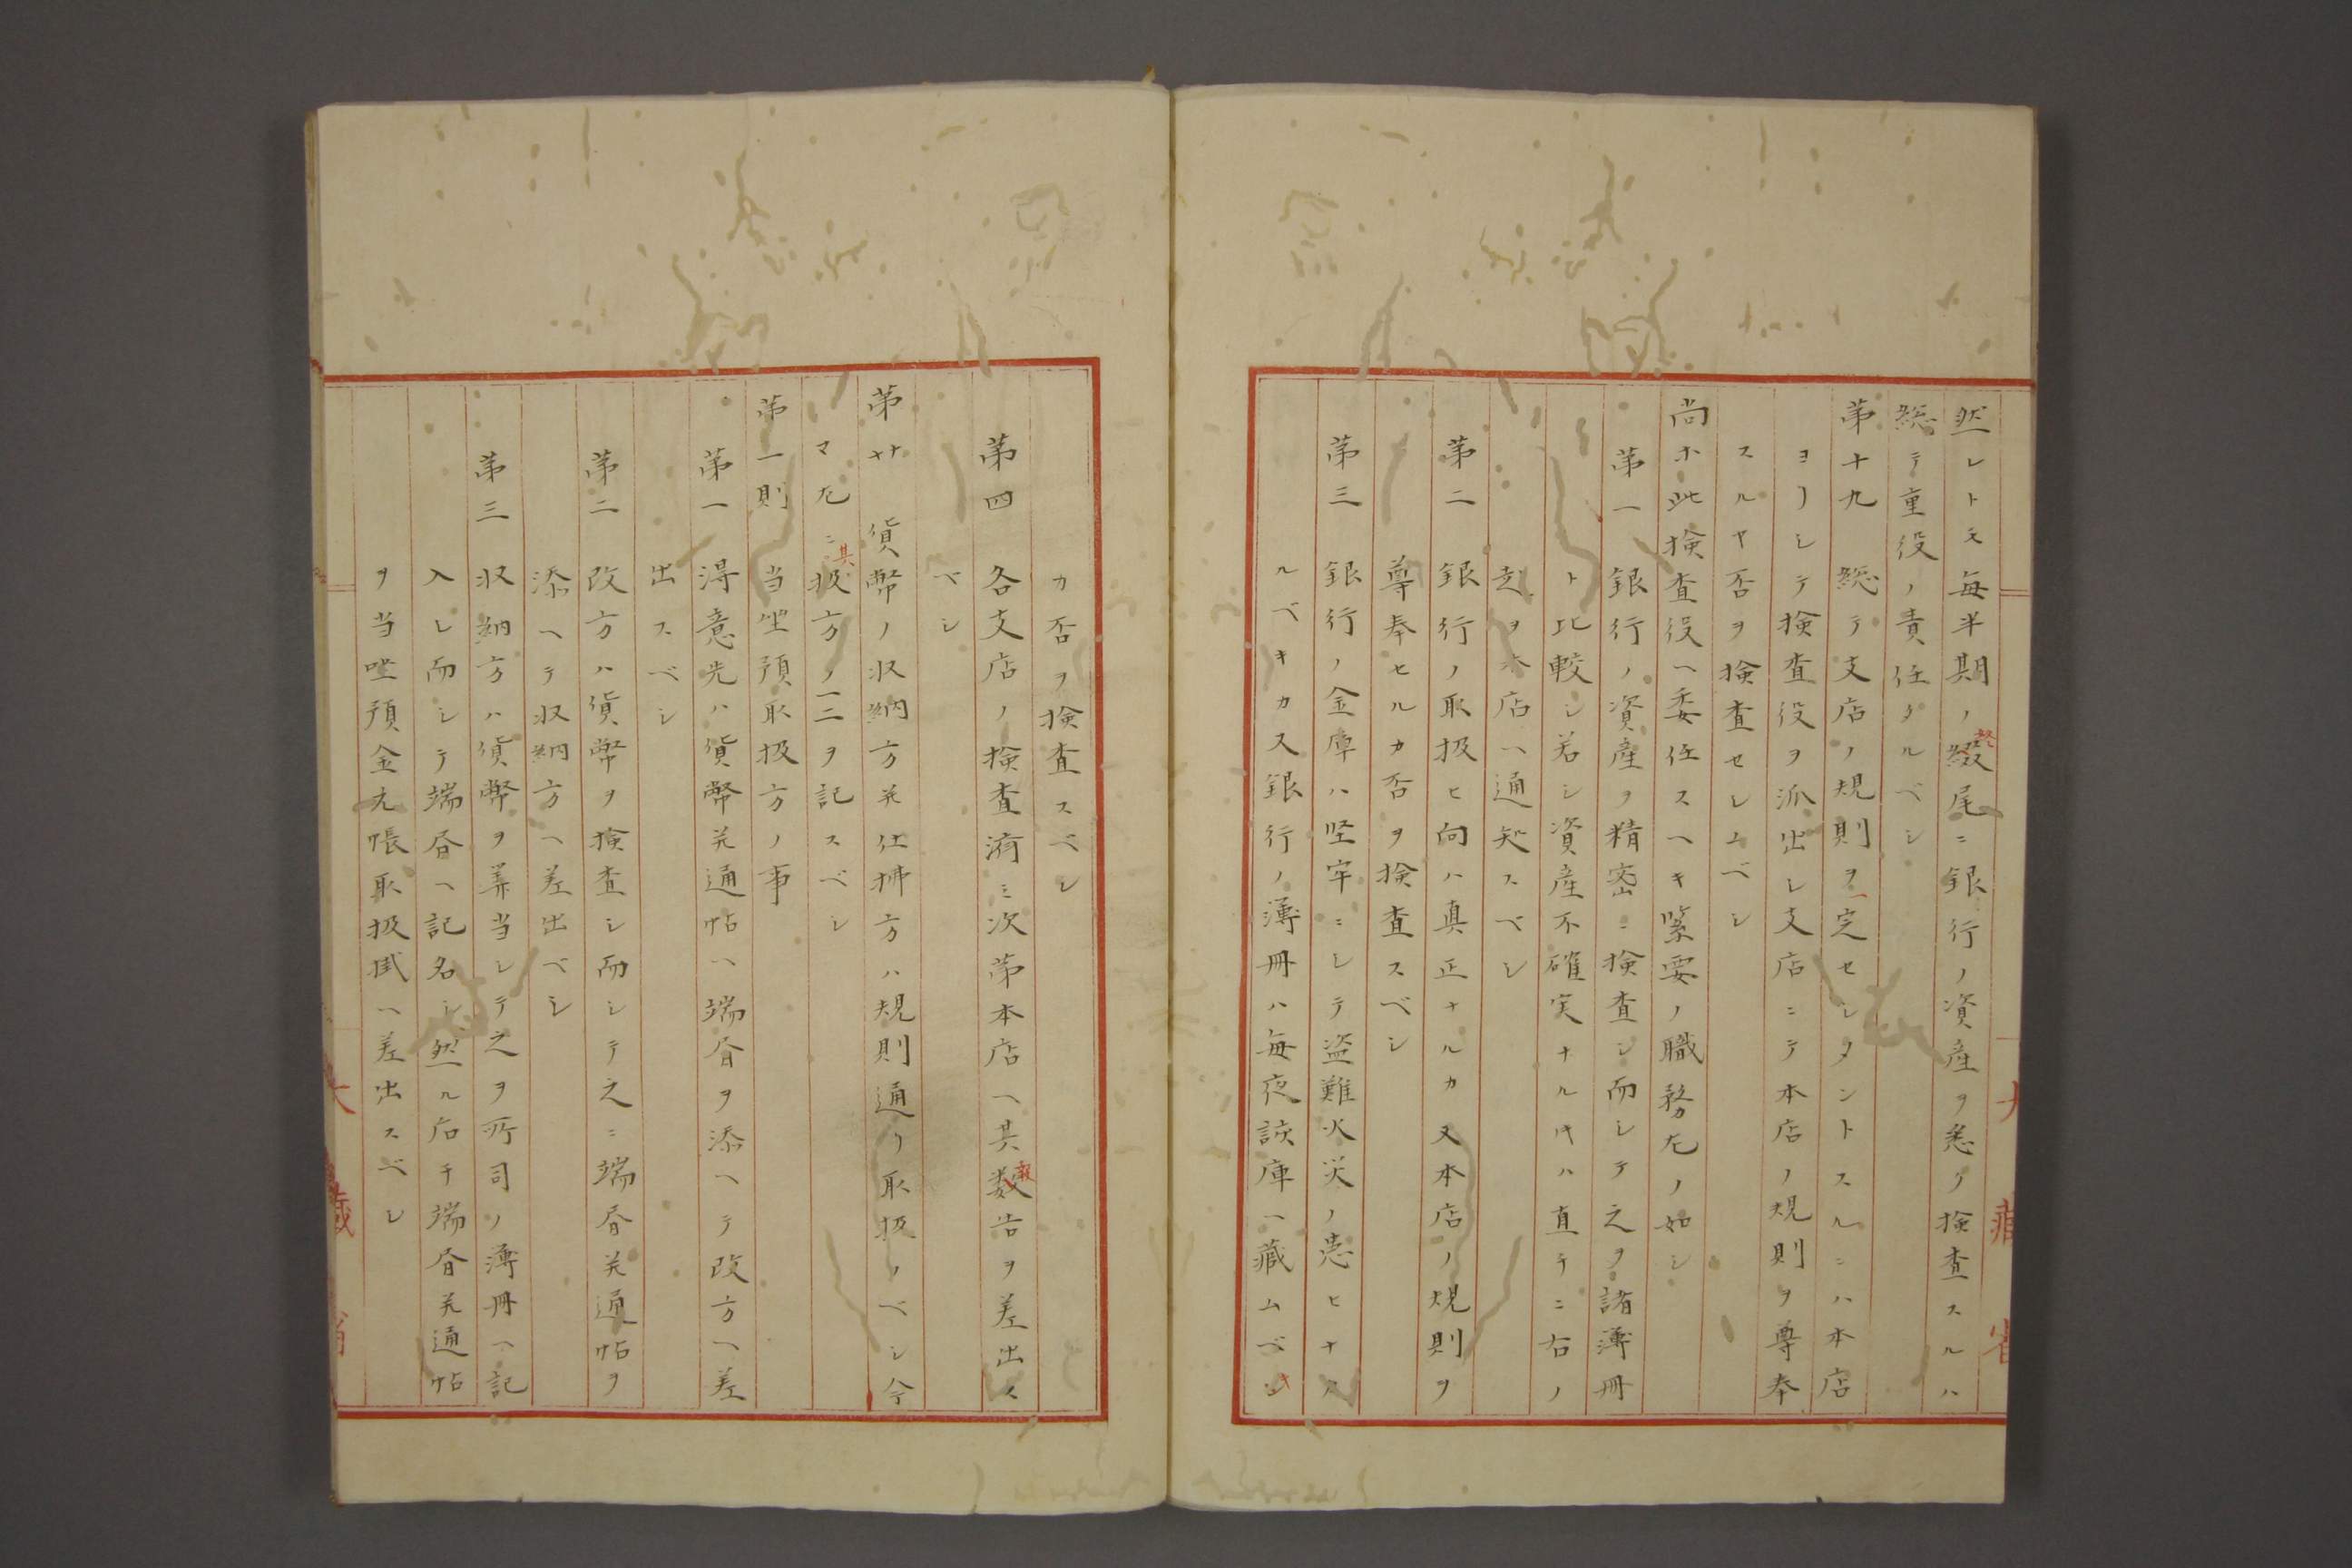 然レトモ毎半期ノ綴尾ニ銀行ノ資産ヲ悉ク検査スルハ
総テ重役ノ責任タルベシ
第十九 総テ支店ノ規則ヲ一定セシメントスルニハ本店
ヨリシテ検査役ヲ派出シ支店ニテ本店ノ規則ヲ尊奉
スルヤ否ヲ検査セシムベシ
尚ホ此検査役ヘ委任スヘキ緊要ノ職務左ノ如シ
第一 銀行ノ資産ヲ精密ニ検査シ而シテ之ヲ諸薄冊
ト比較シ若シ資産不確実ナルトキハ直チニ右ノ
趣ヲ本店ヘ通知スベシ
第二 銀行ノ取扱ヒ向ハ真正ナルカ又本店ノ規則ヲ
尊奉セルカ否ヲ検査スベシ
第三 銀行ノ金庫ハ堅牢ニシテ盗難火災ノ患ヒナカ
ルベキカ又銀行ノ薄冊ハ毎夜該庫ヘ蔵ムベキ
カ否ヲ検査スベシ
第四 各支店ノ検査済ミ次第本店ヘ其報告ヲ差出ス
ベシ
第廿 貨幣ノ収納方并仕拂方ハ規則通リ取扱ノベシ今
マ左ニ其扱方ノ一二ヲ記スベシ
第一則 当坐預取扱方ノ事
第一 得意先ハ貨幣并通帖ヘ端書ヲ添ヘテ改方ヘ差
出スベシ
第二 改方ハ貨幣ヲ検査シ而シテ之ニ端書并通帖ヲ
添ヘテ収納方ヘ差出ベシ
第三 収納方ハ貨幣ヲ算当シテ之ヲ所司ノ薄冊ヘ記
入シ而シテ端書ヘ記名シ然ル后チ端書并通帖
ヲ当坐預金元帳取扱掛ヘ差出スベシ
大藏省